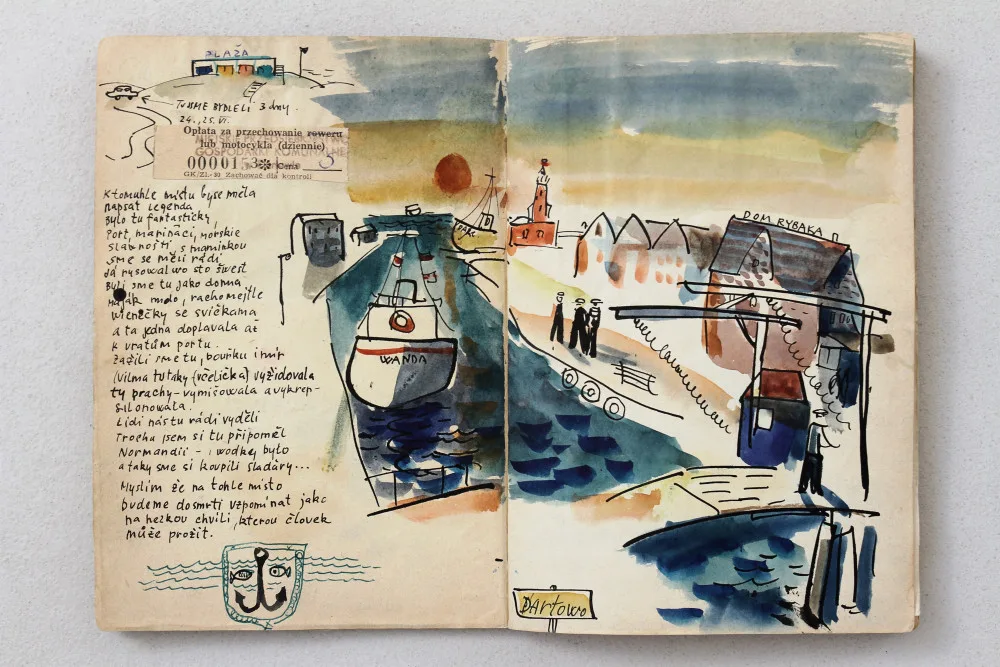 PLAŽA
TU JSME BYDLELI 3 dny.
24., 25. VI.
Opłata za przechowanie roweru
lub motocykla (dziennie)
MIEJSKIE PRZEDSIĘBIORSTWO
GOSPODARKI KOMUNALNEJ
000015 Cena 5
GK/ZŁ-30 Zachować dla kontroli
K tomuhle místu by se měla
napsat legenda
Bylo tu fantasticky,
Port, mariňáci, mořské
slavnosti, s maminkou
sme se měli rádi
Já rysoval wo sto šwest
Byli sme tu jako doma
Maják, molo,
wienečky se svíčkama
a ta jedna doplavala až
k vratům portu.
Zažili sme tu, bouřku i mír
(Vilma tu taky (včelička) vyžidovala
ty prachy - vymišowala a vykrep-
silonowala.
Lidi nás tu rádi vyděli
Trocha jsem si tu připoměl
Normandii - i wodkej bylo
a taky sme si koupili sladáry...
Myslim že na tohle místo
budeme do smrti vzpomínat jako
na hezkou chvíli, kterou člověk
může prožít.
WANDA
DAR
DOM RYBAKA
Darłowo